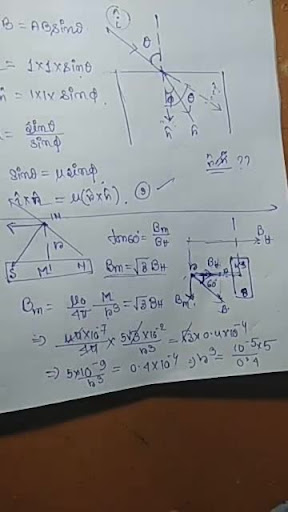 B = AB sinθ
= 1×1×sinθ
= 1×1× sinφ
= sinθ/sinφ
sinθ = μ sinφ
= μ(r̂×n̂). ③
??
θ
φ
S M' N
tan60 = Bm/BH
Bm = √3 BH
BH
60°
Bm = μ0/4π M/r³ = √3 BH
⇒ 4π×10⁻⁷/4π × 5√3×10⁻²/r³ = √3×0.4×10⁻⁴
⇒ 5×10⁻⁹/r³ = 0.4×10⁻⁴ ⇒ r³ = 10⁻⁵×5/0.4